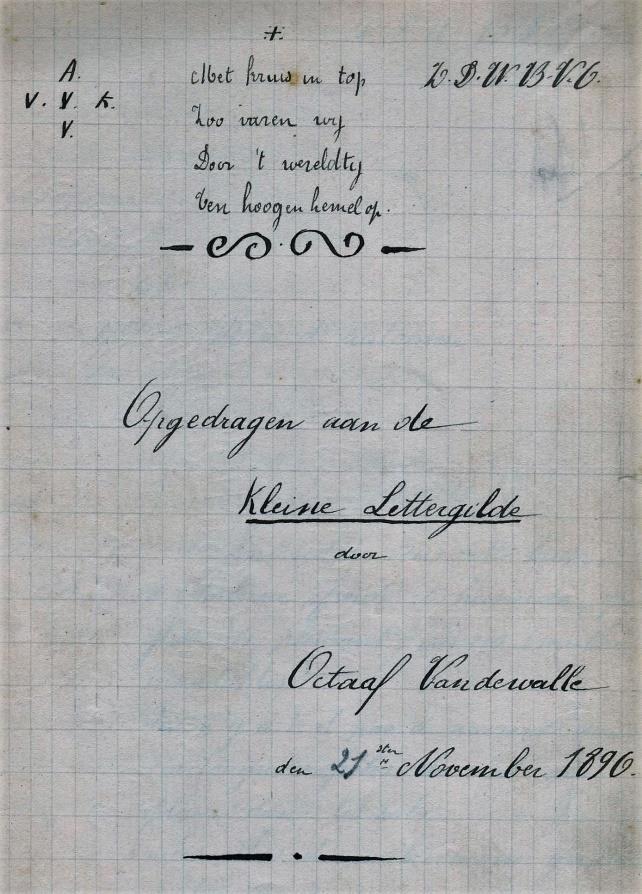 +
A. Met kruis in top Z. D. W. B. V. C.
V. V. K. Zoo varen wij
V. Door 't wereldtij
Ten hoogen hemel op.
Opgedragen aan de
Kleine Lettergilde
door
Octaaf Vandewalle
den 21sten November 1896.